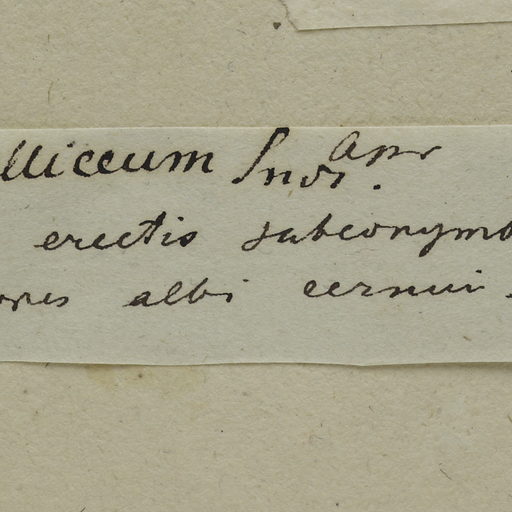 lliceum Ind. Apr
erectis subcorymbo
ores albi cernui.